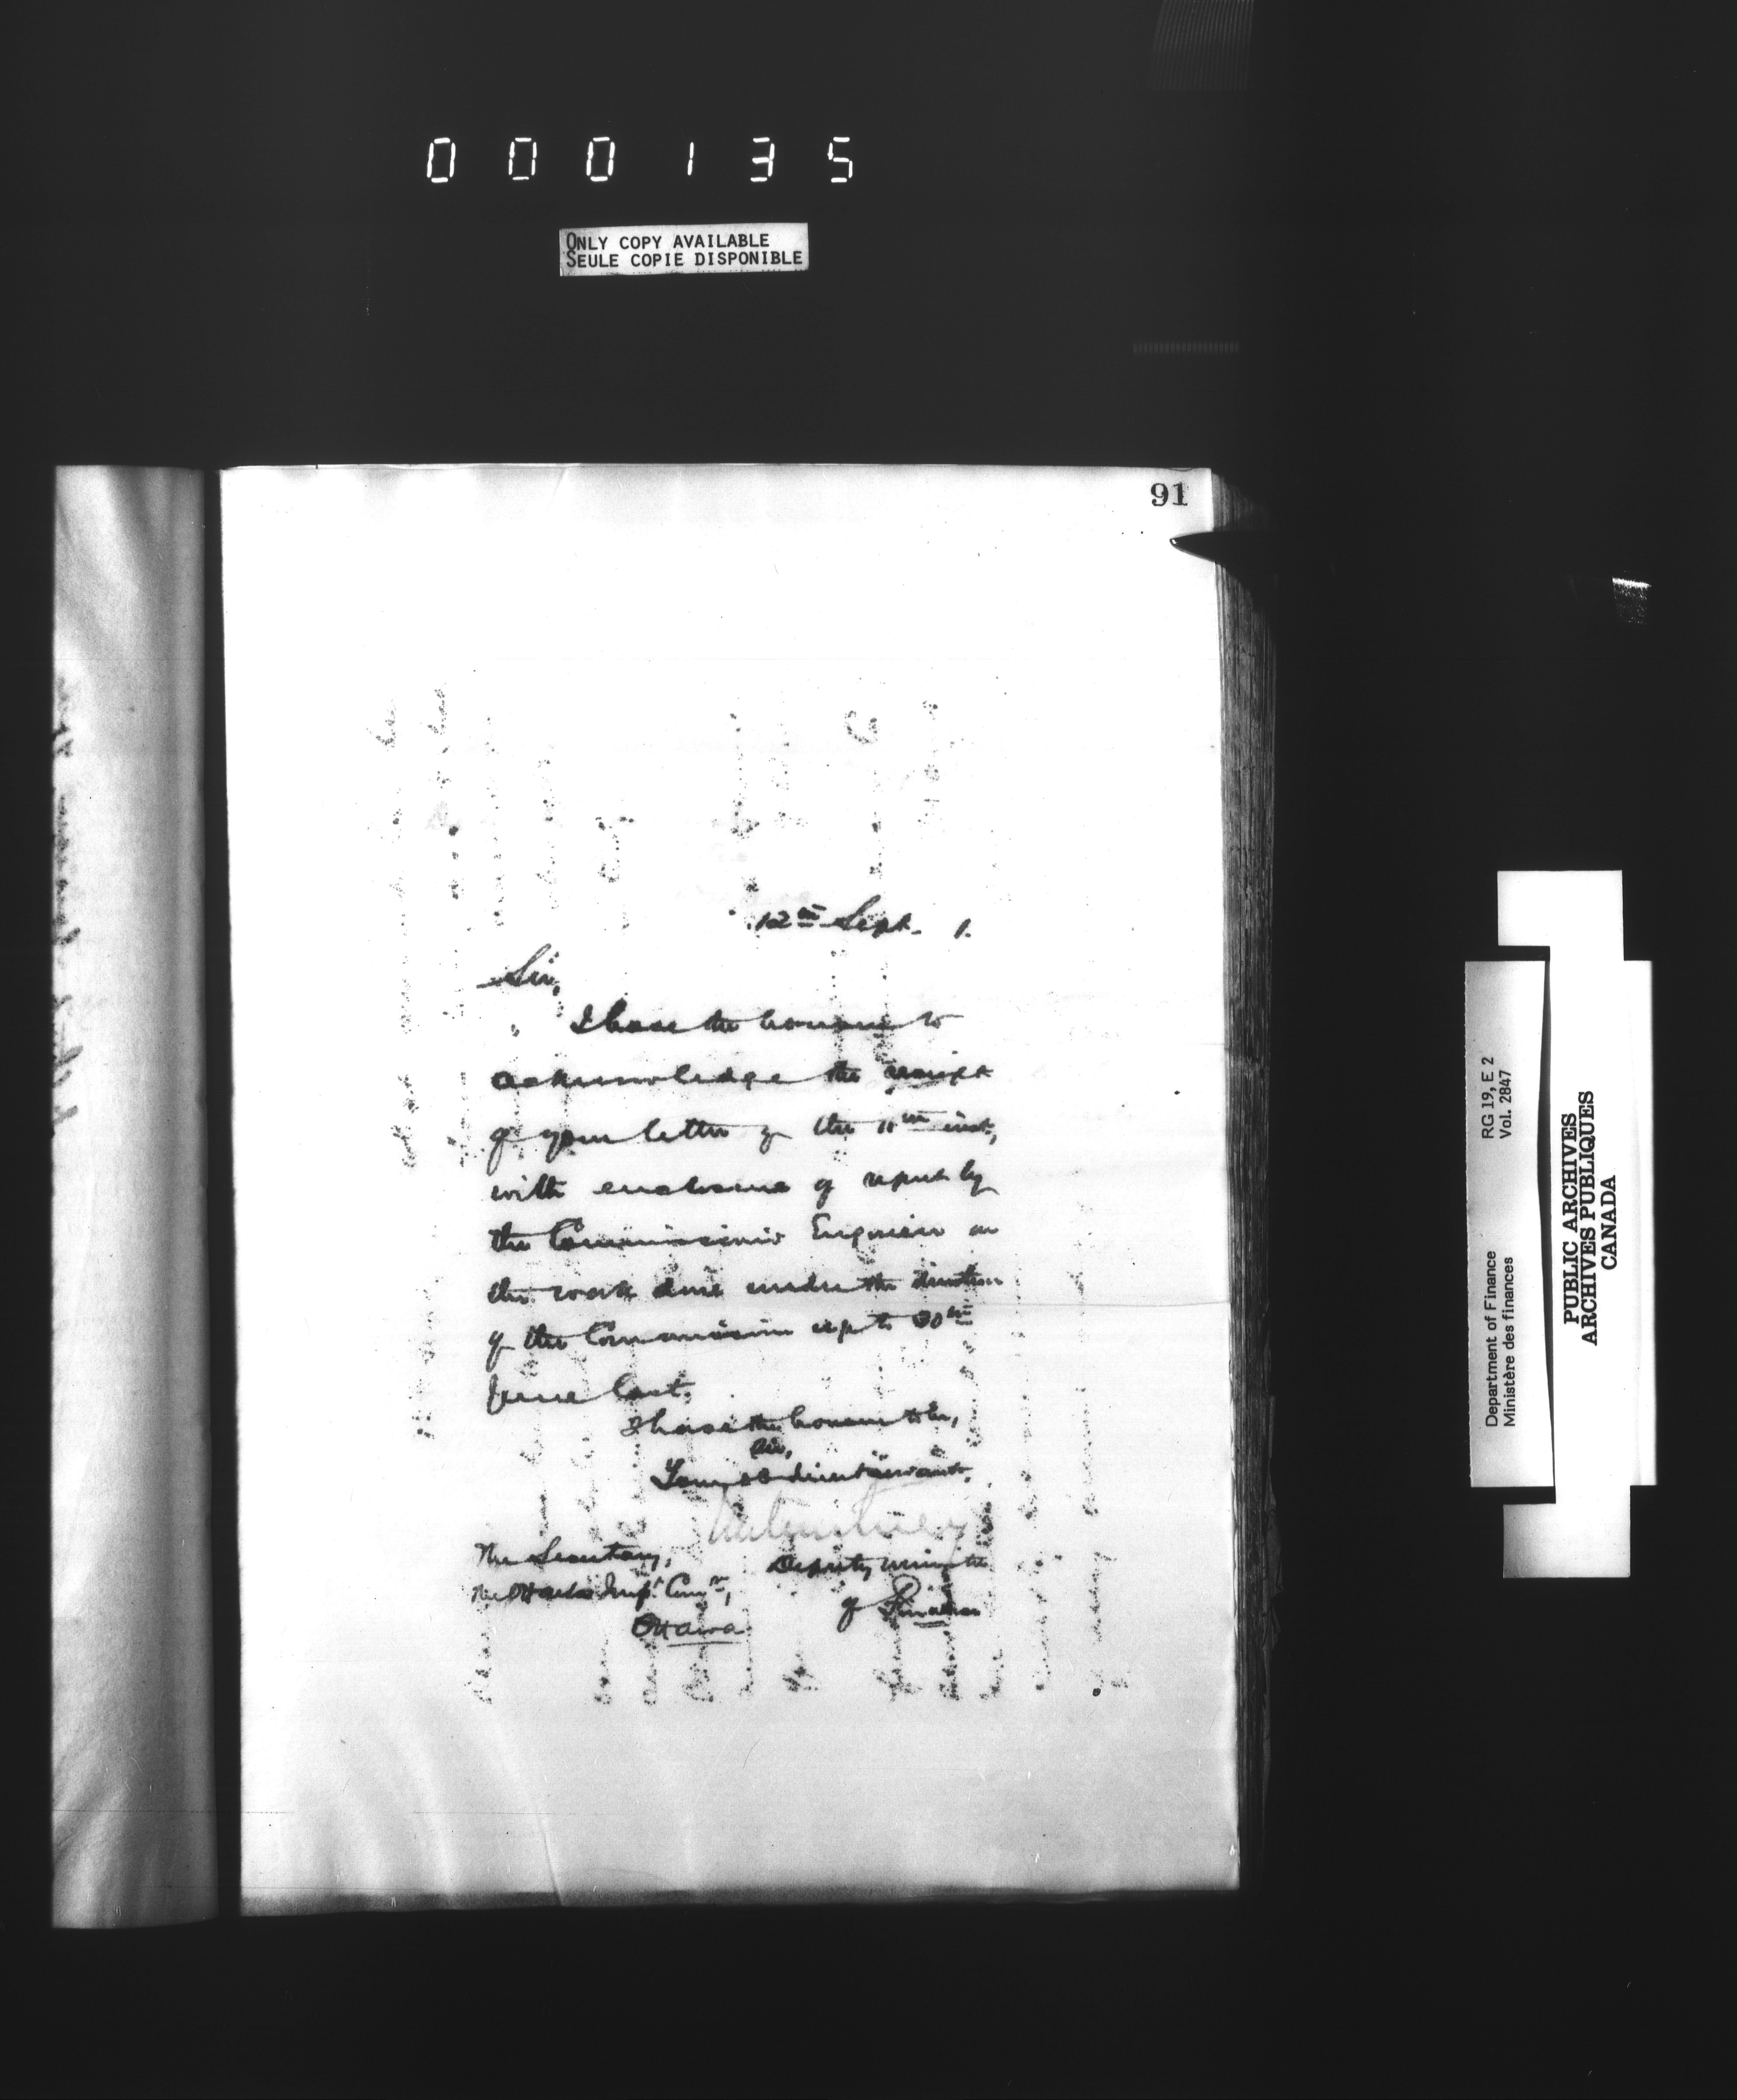 000135
ONLY COPY AVAILABLE
SEULE COPIE DISPONIBLE
91
12th Sept. 1.
Sir,
I have the honour to
acknowledge the receipt
of your letter of the 11th inst,
with enclosure of report by
the Commission's Engineer on
the work done under the direction
of the Commission up to 30th
June last.
I have the honour to be,
Sir,
Your obedient servant,
The Secretary,
Deputy Minister
The Ottawa Impt Comn,
of Finance
Ottawa
Department of Finance RG 19, E 2
Ministère des finances Vol. 2847
PUBLIC ARCHIVES
ARCHIVES PUBLIQUES
CANADA